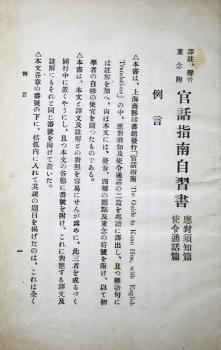 譯註、聲音
重念附
官話指南自習書
應對須知篇
使令通話篇
例言
△本書は、上海商務印書館發行「官話指南 The Guide to Kuan Hua with English
Translation」の中、應對須知及使令通話の二篇を邦語に譯出し、且つ難語句に
は註解を加へ、尙ほ本文には、發音、四聲の圈點及重念の符號を附け、以て初
學者の自修の便宜を圖つたものである。
△本書は、本文と譯文及註解との對照を容易にせんが爲めに、此三者を成るべく
同行中に置くやうにし、且つ本文の各節に番號を附け、これに對應する譯文及
註解にもそれと同じ番號を附けて置いた。
△本文各章の番號の下に、括弧內に入れて其課の題目を揭げたのは、これは全く
例言